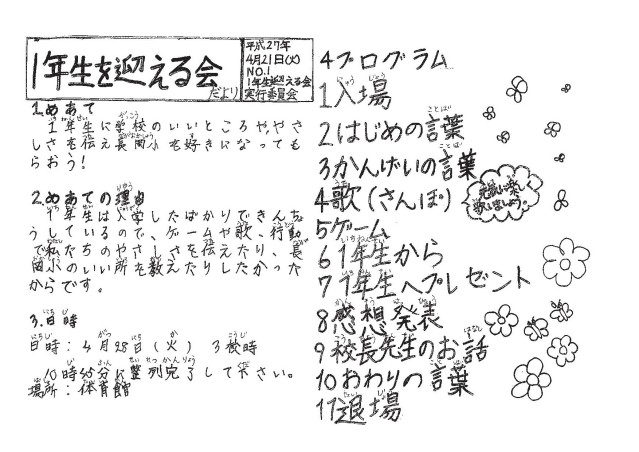 1年生を迎える会
だより
平成27年
4月21日(火)
NO.1
1年生迎える会
実行委員会
1.めあて
1年生に学校のいいところや、やさ
しさを伝え長岡小を好きになっても
らおう!
2.めあての理由
1年生は入学したばかりできんち
ょうしているので、ゲームや歌、行動
で私たちのやさしさを伝えたり、長
岡小のいい所を教えたりしたかった
からです。
3.日時
日時:4月28日(火) 3校時
10時45分に整列完了して下さい。
場所:体育館
4プログラム
1入場
2はじめの言葉
3かんげいの言葉
4歌(さんぽ)
元気に楽しく
歌いましょう。
5ゲーム
6 1年生から
7 1年生へプレゼント
8感想発表
9校長先生のお話
10おわりの言葉
11退場